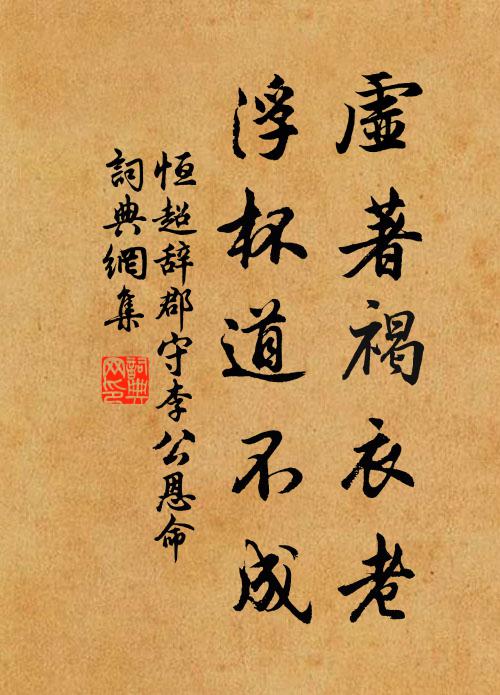 虛著褐衣老
浮杯道不成
恒超辞郡守李公恩命
詞典網集
詞典
网印